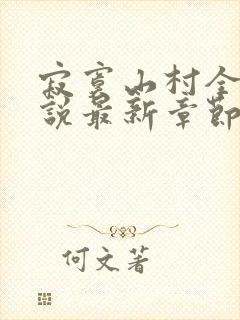 寂寞山村全
說最新章節
何文著